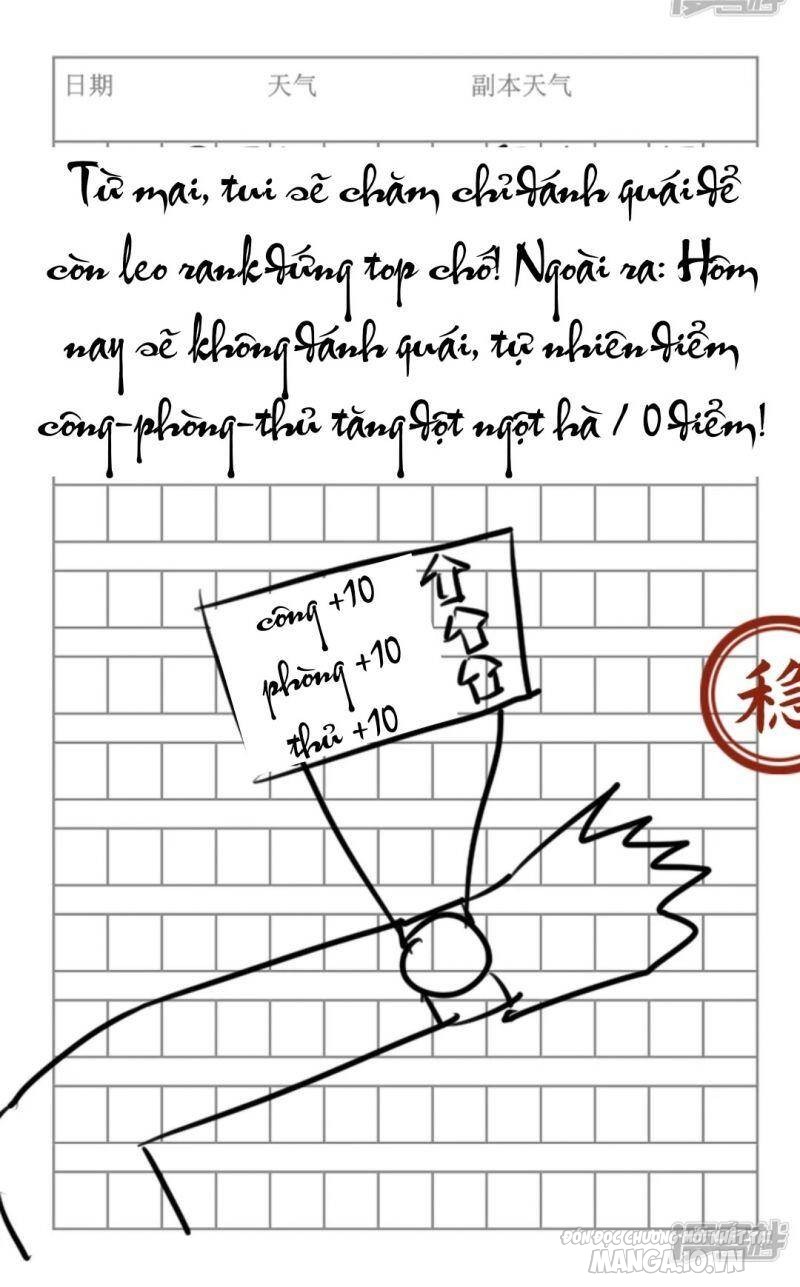 日期 天气 副本天气
Từ mai, tui sẽ chăm chỉ đánh quái để
còn leo rank đứng top chớ! Ngoài ra: Hôm
nay sẽ không đánh quái, tự nhiên điểm
công-phòng-thủ tăng đột ngột hà / 0 điểm!
công +10
phòng +10
thủ +10
稳
ĐÓN ĐỌC CHƯƠNG MỚI NHẤT TẠI
MANGA.IO.VN